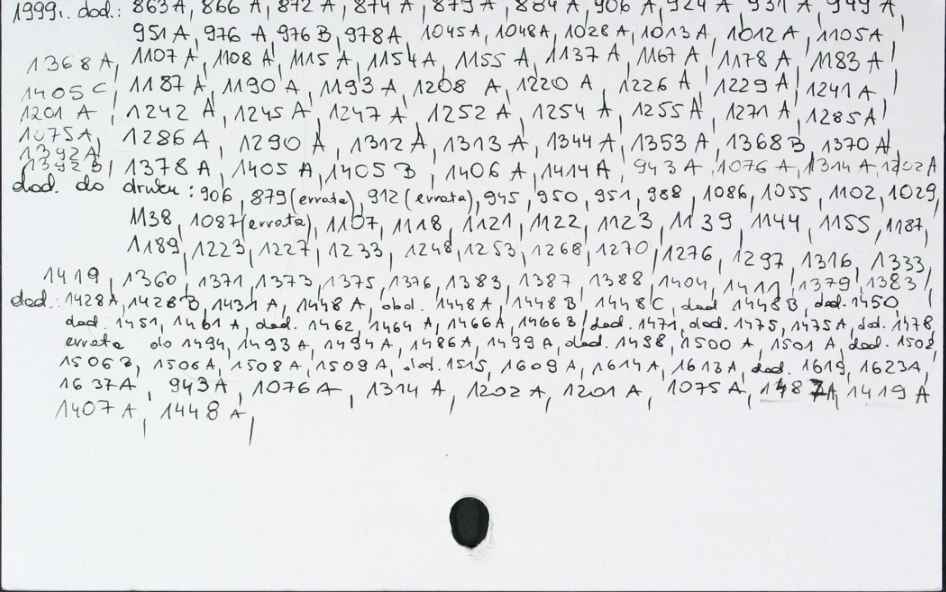 1999r. dod.: 863A, 866 A, 872 A, 874 A, 879 A, 884 A, 906 A, 924 A, 931 A, 949 A,
951A, 976 A, 976B, 978A, 1045A, 1048A, 1028A, 1013A, 1012A, 1105A
1368A, 1107 A, 1108 A, 1115 A, 1154A, 1155 A, 1137 A, 1167 A, 1178 A, 1183 A
1405 C, 1187 A, 1190 A, 1193 A, 1208 A, 1220 A, 1226 A, 1229 A, 1241 A
1201 A, 1242 A, 1245A, 1247 A, 1252 A, 1254 A, 1255A, 1271 A, 1285A
1075A, 1286A, 1290 A, 1312A, 1313A, 1344A, 1353 A, 1368B, 1370 A
1392A
1392B, 1378 A, 1405 A, 1405 B, 1406 A, 1414A, 943 A, 1076A, 1314 A, 1202A
dod. do druku: 906, 879 (errata), 912 (errata), 945, 950, 951, 988, 1086, 1055, 1102, 1029,
1138, 1087 (errata), 1107, 1118, 1121, 1122, 1123, 1139, 1144, 1155, 1187,
1189, 1223, 1227, 1233, 1248, 1253, 1268, 1270, 1276, 1297, 1316, 1333,
1419, 1360, 1371, 1373, 1375, 1376, 1383, 1387, 1388, 1404, 1411, 1379, 1383,
dod.: 1428A, 1428B, 1431 A, 1448 A, dod. 1448 A, 1448 B, 1448C, dod 1448 B, dod. 1450,
dod. 1451, 1461 A, dod. 1462, 1464 A, 1466A, 1466B, dod. 1471, dod. 1475, 1475A, dod. 1478,
errata do 1494, 1493 A, 1494A, 1486A, 1499 A, dod. 1498, 1500 A, 1501 A, dod. 1502,
1506B, 1506A, 1508A, 1509A, dod. 1515, 1609A, 1614A, 1613A, dod. 1619, 1623A,
1637A, 943A, 1076A, 1314 A, 1202 A, 1201 A, 1075A, 1487A, 1419 A
1407 A, 1448 A,